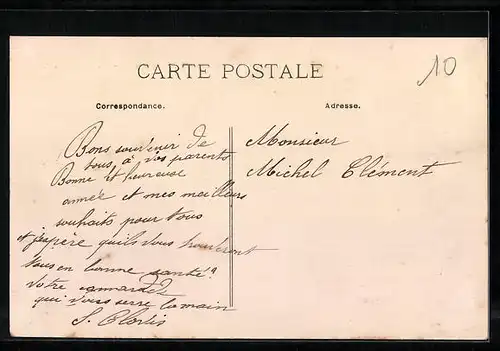 10
CARTE POSTALE
Correspondance.
Adresse.
Bons souvenir de
tous, à vos parents
Bonne et heureuse
année et mes meilleurs
souhaits pour vous
et j'espère qu'ils vous trouveront
tous en bonne santé
votre camarade
qui vous serre la main
S.
Monsieur
Michel Clément